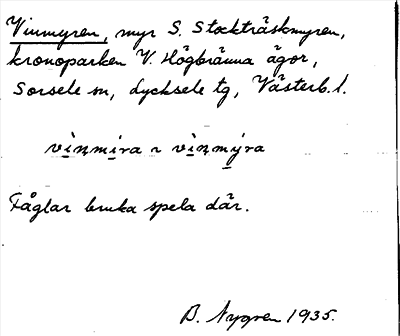 Vinmyren, myr S. Stockträskmyren,
kronoparken V. Högbränna ägor,
Sorsele sn, Lycksele tg, Västerb. l.
vìnmira ~ vìnmýra
Fåglar bruka spela där.
B. Nygren 1935.